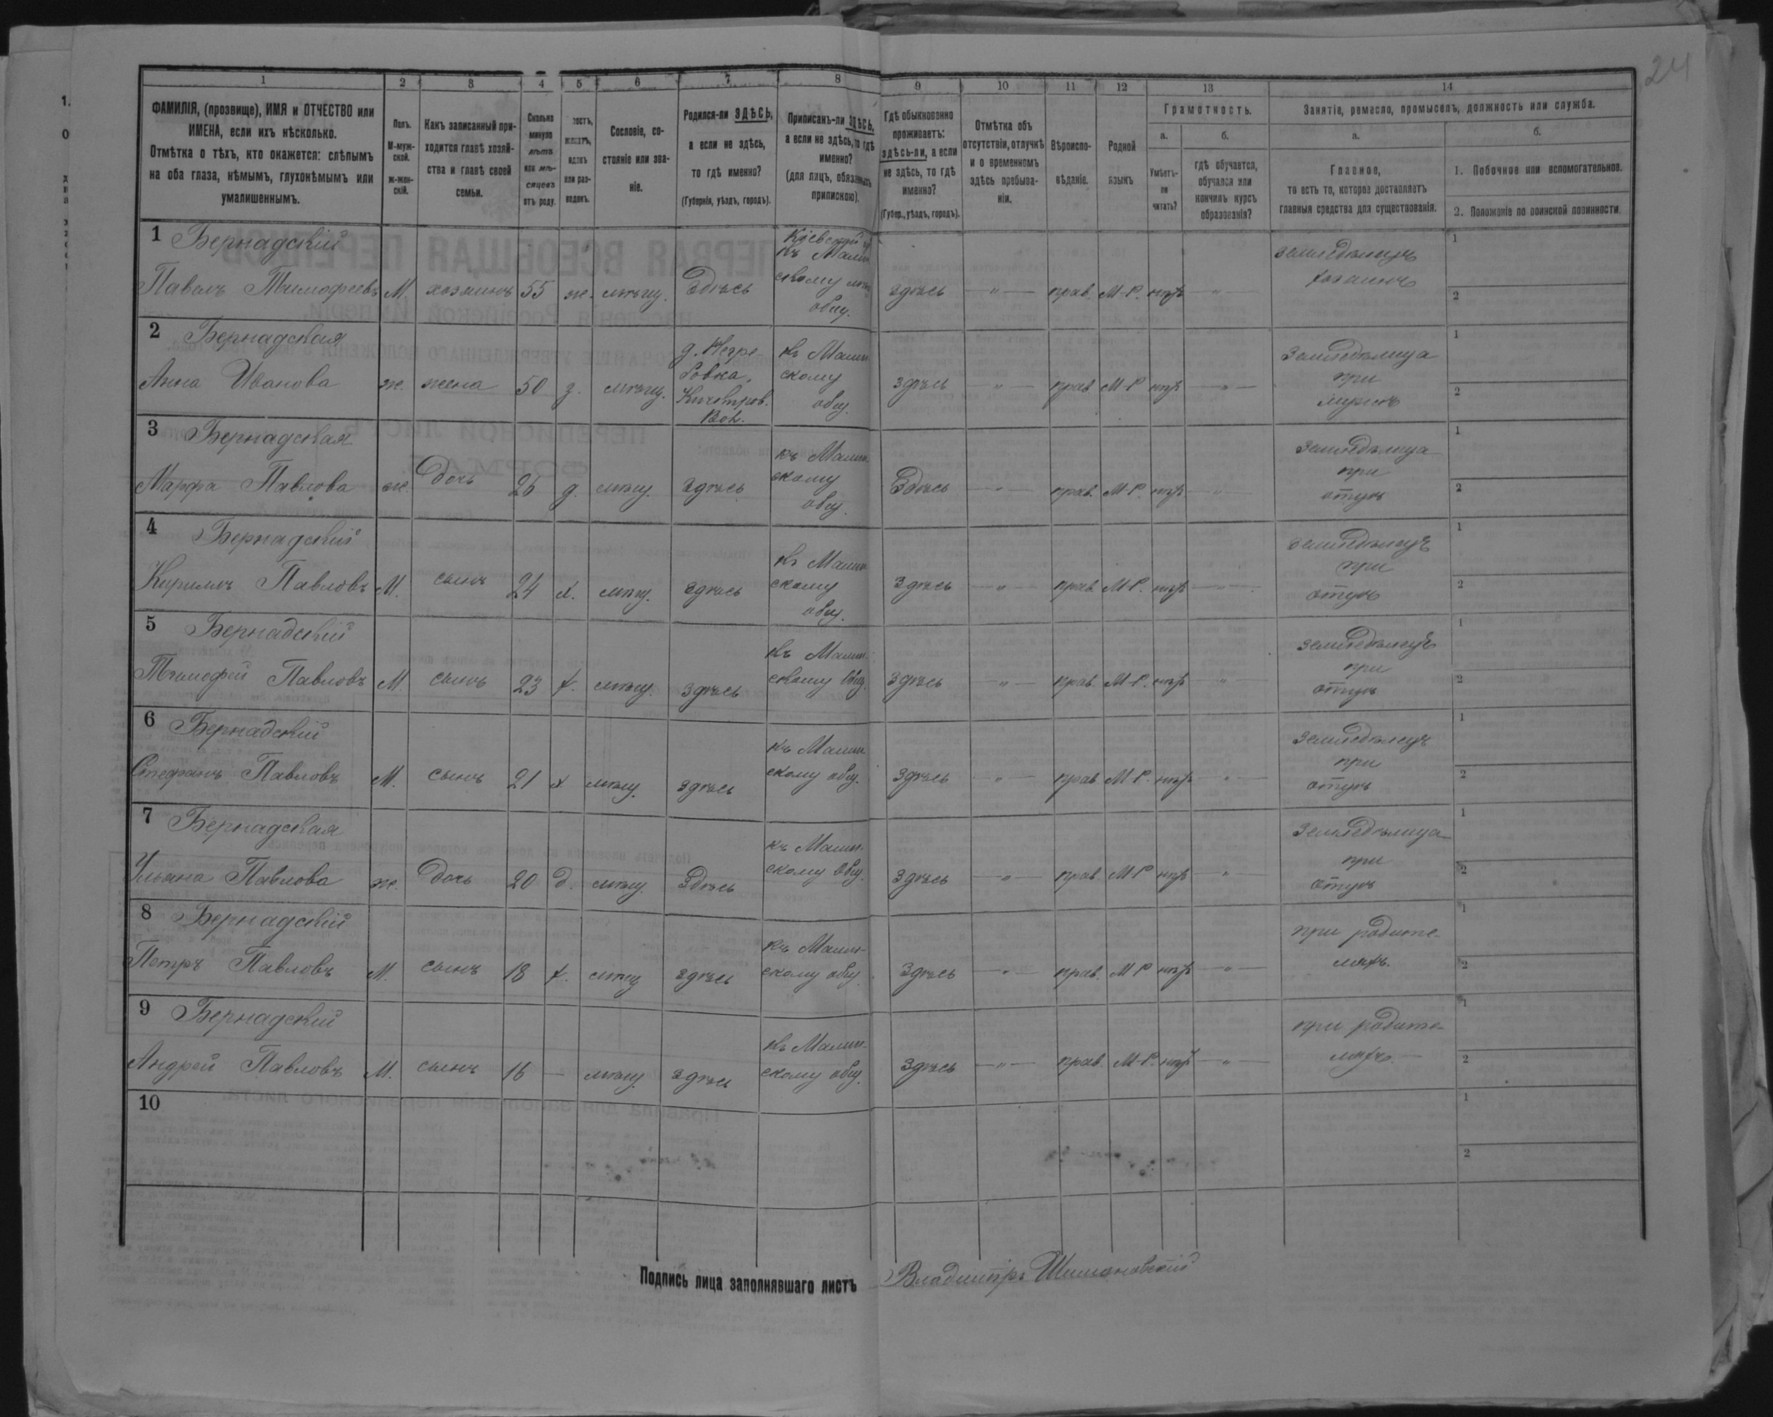 24
1 2 3 4 5 6 7 8 9 10 11 12 13 14
ФАМИЛІЯ, (прозвище), ИМЯ и ОТЧЕСТВО или
ИМЕНА, если ихъ нѣсколько.
Отмѣтка о тѣхъ, кто окажется: слѣпымъ
на оба глаза, нѣмымъ, глухонѣмымъ или
умалишеннымъ.
Полъ.
М-муж-
ской.
Ж-жен-
скій.
Какъ записанный при-
ходится главѣ хозяй-
ства и главѣ своей
семьи.
Сколько
минуло
лѣтъ
или мѣ-
сяцевъ
отъ роду.
Сословіе, со-
стояніе или зва-
ніе.
Родился-ли ЗДѢСЬ,
а если не здѣсь,
то гдѣ именно?
(Губернія, уѣздъ, городъ).
Приписанъ-ли ЗДѢСЬ,
а если не здѣсь, то гдѣ
именно?
(для лицъ, обязанныхъ
припискою).
Гдѣ обыкновенно
проживаетъ:
здѣсь-ли, а если
не здѣсь, то гдѣ
именно?
(Губер., уѣздъ, городъ).
Отмѣтка объ
отсутствіи, отлучкѣ
и о временномъ
здѣсь пребыва-
ніи.
Вѣроиспо-
вѣданіе.
Родной
языкъ
Грамотность.
а.
Умѣетъ-
ли
читать?
б.
гдѣ обучается,
обучался или
кончилъ курсъ
образованія?
Занятіе, ремесло, промыселъ, должность или служба.
а.
Главное,
то есть то, которое доставляетъ
главныя средства для существованія.
б.
1. Побочное или вспомогательное.
2. Положеніе по воинской повинности.
1 Бернадскій
Павелъ Тимофеевъ М. хозяинъ 55 ж. мѣщ. Здѣсь къ Малин скому общ. здѣсь — " — прав. М-Р. нѣтъ — " — земледѣлецъ хозяинъ
2 Бернадская
Анна Иванова ж. жена 50 з. мѣщ. къ Малин скому общ. здѣсь — " — прав. М-Р. нѣтъ — " — земледѣлица при мужѣ
3 Бернадская
Марфа Павлова ж. Дочь 25 д. мѣщ. здѣсь къ Малин скому общ. Здѣсь — " — прав. М-Р. нѣтъ — " — земледѣлица при отцѣ
4 Бернадскій
Кирилъ Павловъ М. сынъ 24 х. мѣщ. здѣсь къ Малин скому общ. здѣсь — " — прав. М-Р. нѣтъ — " — земледѣлецъ при отцѣ
5 Бернадскій
Тимофей Павловъ М. сынъ 23 х. мѣщ. здѣсь къ Малин скому общ. здѣсь — " — прав. М-Р. нѣтъ — " — земледѣлецъ при отцѣ
6 Бернадскій
Стефанъ Павловъ М. сынъ 21 х мѣщ. здѣсь къ Малин скому общ. здѣсь — " — прав. М-Р. нѣтъ — " — земледѣлецъ при отцѣ
7 Бернадская
Ульяна Павлова ж. Дочь 20 д. мѣщ. Здѣсь къ Малин- скому общ. здѣсь — " — прав. М-Р нѣтъ — " — земледѣлица при отцѣ
8 Бернадскій
Петръ Павловъ М. сынъ 18 х. мѣщ здѣсь къ Малин- скому общ. здѣсь — " — прав. М-Р нѣтъ — " — при родите- ляхъ
9 Бернадскій
Андрей Павловъ М. сынъ 16 — мѣщ. здѣсь къ Малин- скому общ. здѣсь — " — прав. М-Р. нѣтъ — " — при родите- ляхъ
10
Подпись лица заполнявшаго листъ Владиміръ